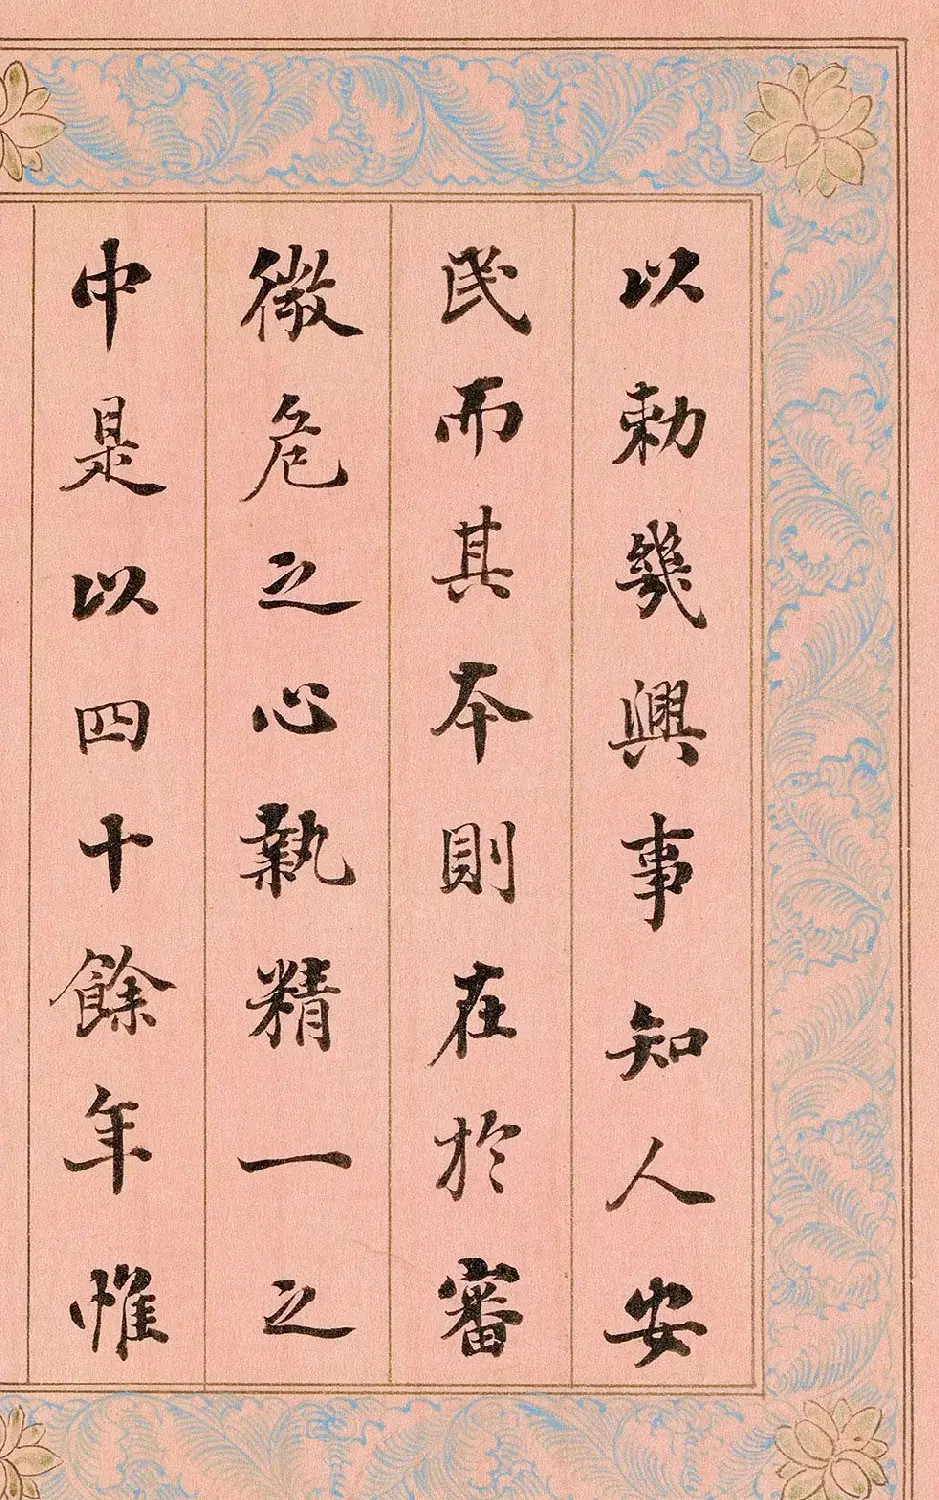 以勅幾興事知人安
民而其本則在於審
微危之心執精一之
中是以四十餘年惟